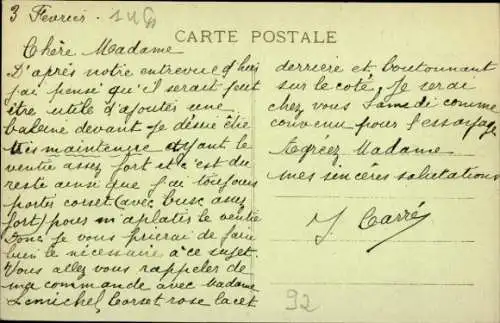 3 Fevrier.
CARTE POSTALE
Chère Madame
D'après notre entrevue d'hier
j'ai pensé qu'il serait peut
être utile d'ajouter une
baleine devant Je désire être
très maintenue ayant le
ventre assez fort et c'est du
reste ainsi que j'ai toujours
porter corset (avec busc assez
fort) pour m'aplater le ventre
Donc je vous prierai de faire
bien le nécessaire à ce sujet.
Vous allez vous rappeler de
ma commande avec Madame
Lemichel, Corset rose lacet
derrière et boutonnant
sur le coté, Je serai
chez vous Samedi comme
convenu pour l'essayage
Agréez Madame
mes sincères salutations
J. Carré
92